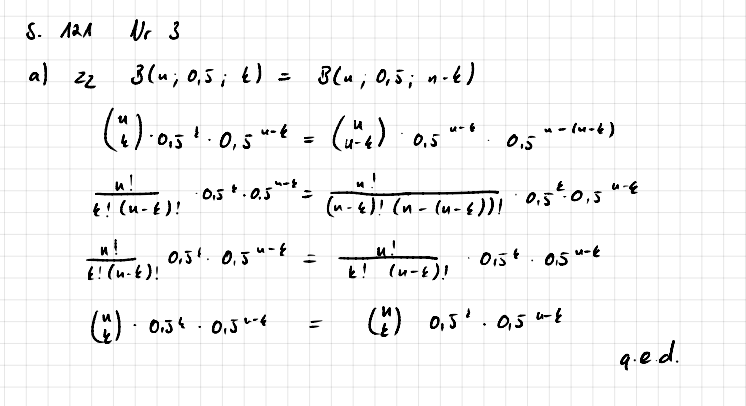 S. 121 Nr 3
a) zz B(n; 0,5; k) = B(n; 0,5; n-k)
(n k) · 0,5^k · 0,5^(n-k) = (n n-k) · 0,5^(n-k) · 0,5^(n-(n-k))
n! / k! (n-k)! · 0,5^k · 0,5^(n-k) = n! / (n-k)! (n-(n-k))! · 0,5^k · 0,5^(n-k)
n! / k! (n-k)! 0,5^k · 0,5^(n-k) = n! / k! (n-k)! · 0,5^k · 0,5^(n-k)
(n k) · 0,5^k · 0,5^(n-k) = (n k) 0,5^k · 0,5^(n-k)
q.e.d.